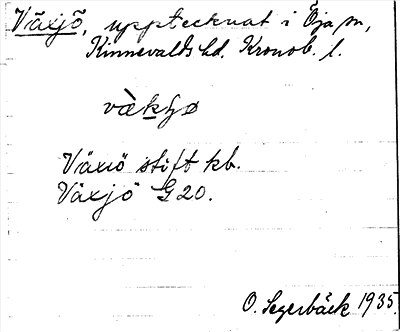 Växjö, upptecknat i Öja sn,
Kinnevalds hd. Kronob. l.
Växiö stift kb.
Växjö G 20.
O. Segerbäck 1935.